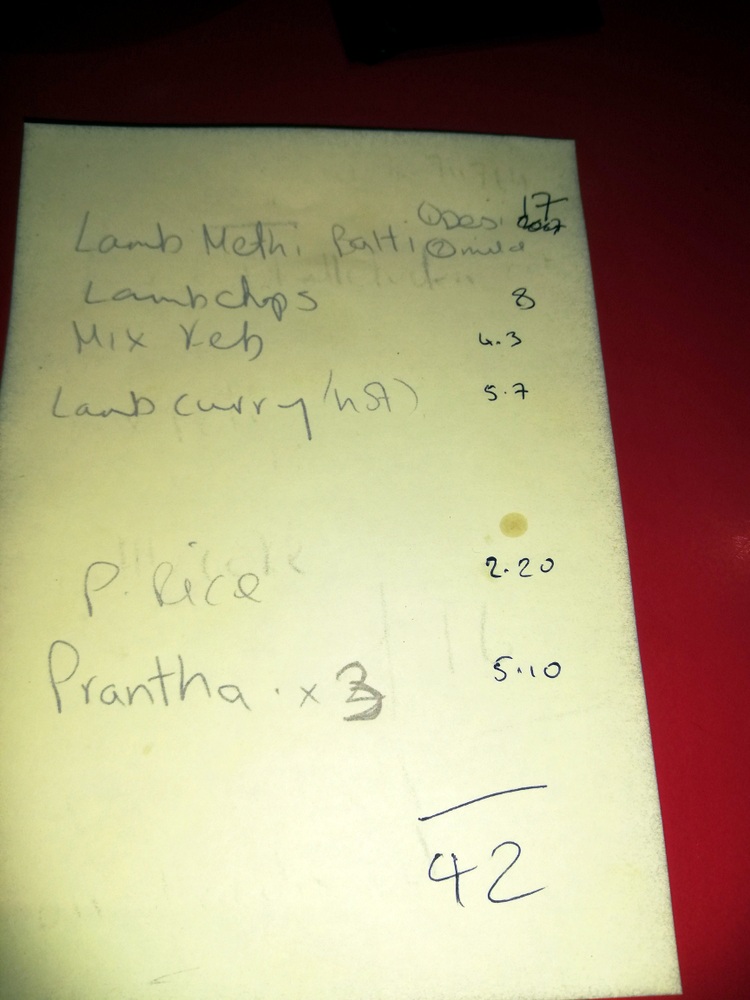 ① Desi 17
Lamb Methi Balti ② mild
Lamb chops 8
Mix Keb 4.3
Lamb curry (hst) 5.7
P. Rice 2.20
Prantha . x 3 5.10
42